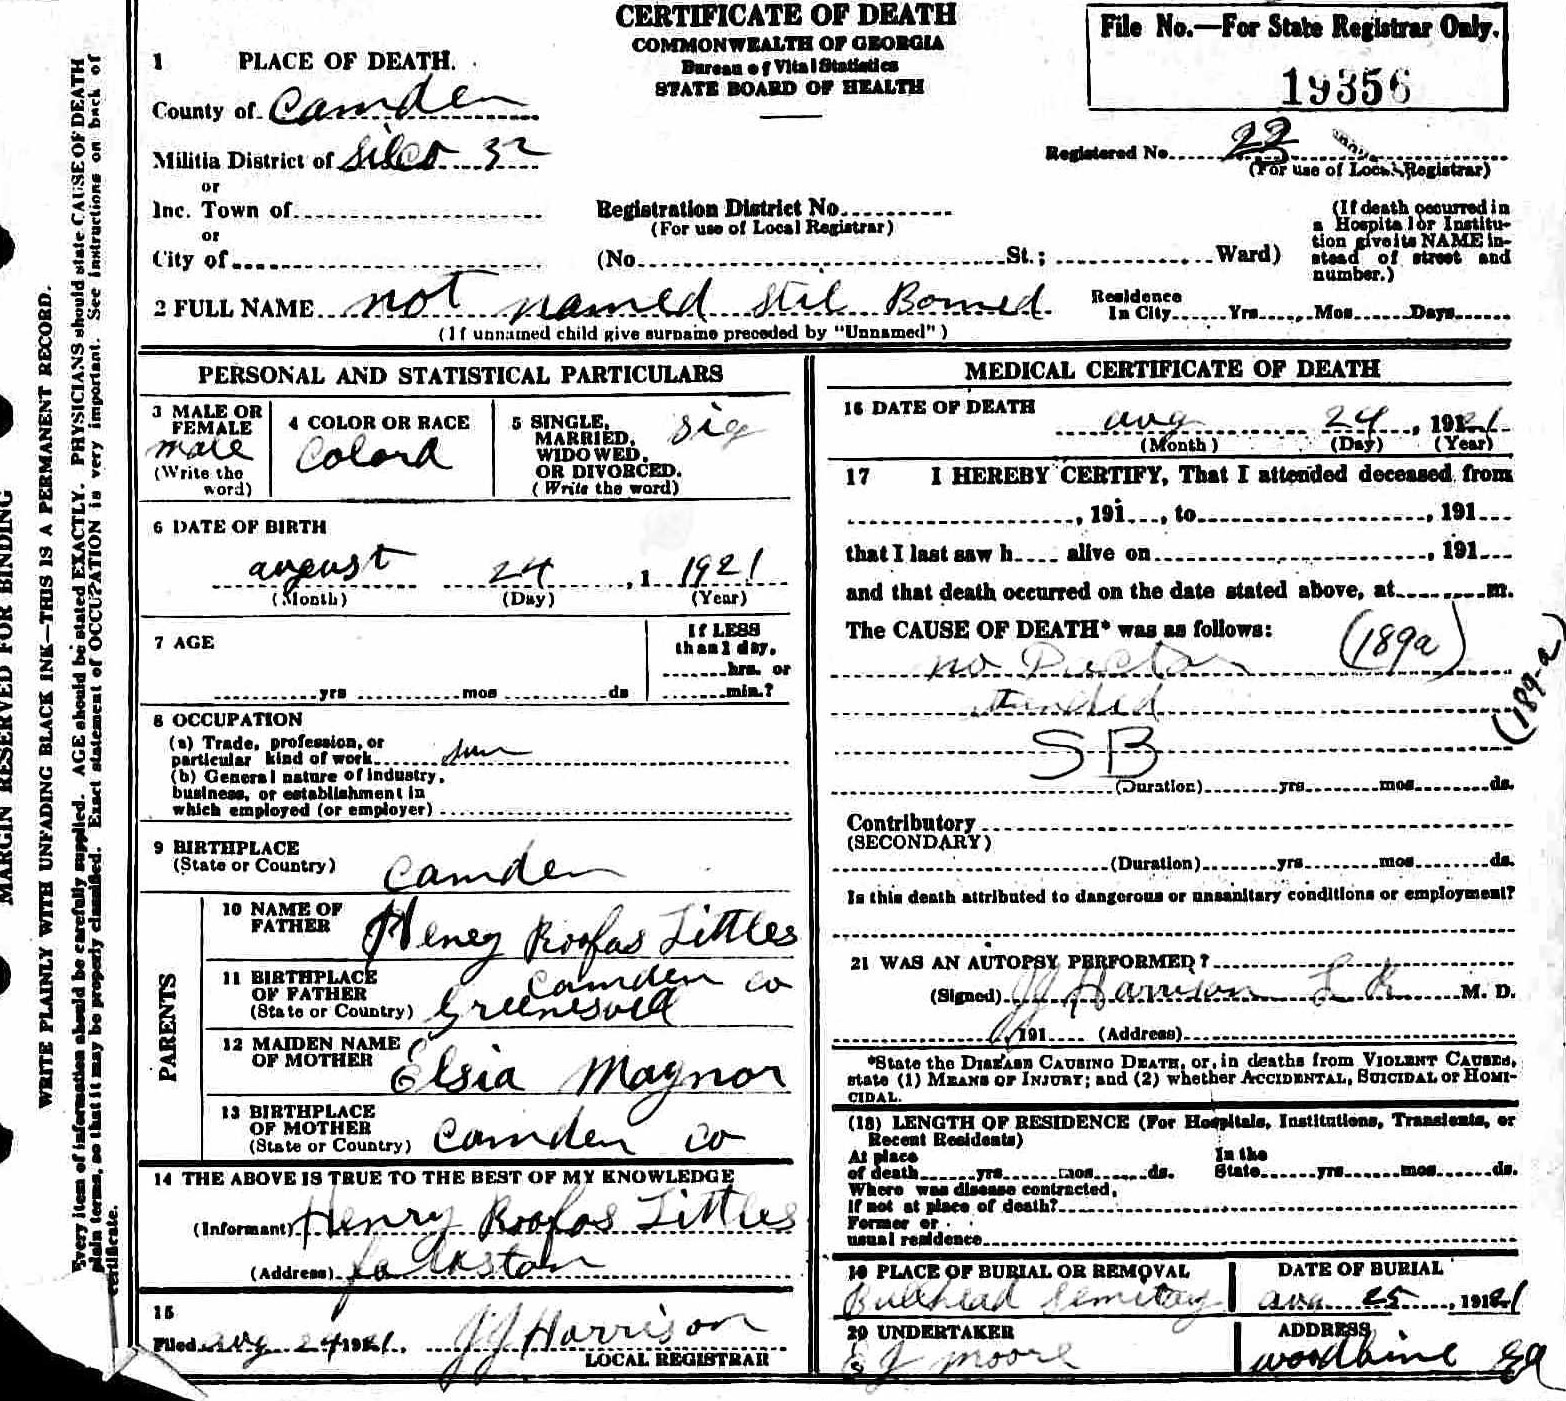 CERTIFICATE OF DEATH
COMMONWEALTH OF GEORGIA
Bureau of Vital Statistics
STATE BOARD OF HEALTH
File No.—For State Registrar Only.
19356
1 PLACE OF DEATH.
County of Camden
Militia District of Silco 32
or
Inc. Town of
or
City of
Registered No. 22
(For use of Local Registrar)
Registration District No.
(For use of Local Registrar)
(No. St.; Ward)
(If death occurred in
a Hospital or Institu-
tion give its NAME in-
stead of street and
number.)
2 FULL NAME not named Stil Borned
(If unnamed child give surname preceded by "Unnamed")
Residence
In City Yrs. Mos. Days
PERSONAL AND STATISTICAL PARTICULARS
3 MALE OR
FEMALE
male
(Write the
word)
4 COLOR OR RACE
Colord
5 SINGLE,
MARRIED,
WIDOWED,
OR DIVORCED.
(Write the word)
sig
6 DATE OF BIRTH
august 24, 1 1921
(Month) (Day) (Year)
7 AGE
yrs mos ds
If LESS
than 1 day,
hrs. or
min.?
8 OCCUPATION
(a) Trade, profession, or
particular kind of work
(b) General nature of industry,
business, or establishment in
which employed (or employer)
9 BIRTHPLACE
(State or Country) Camden
PARENTS
10 NAME OF
FATHER Heney Roofas Littles
11 BIRTHPLACE
OF FATHER
(State or Country)
Camden co
12 MAIDEN NAME
OF MOTHER Elsia Maynor
13 BIRTHPLACE
OF MOTHER
(State or Country) Camden co
14 THE ABOVE IS TRUE TO THE BEST OF MY KNOWLEDGE
(Informant) Henry Roofas Littles
(Address)
15
Filed aug 24 1921. JJ Harrison
LOCAL REGISTRAR
MEDICAL CERTIFICATE OF DEATH
16 DATE OF DEATH
aug 24, 1921
(Month) (Day) (Year)
17 I HEREBY CERTIFY, That I attended deceased from
, 191 , to , 191
that I last saw h alive on , 191
and that death occurred on the date stated above, at m.
The CAUSE OF DEATH* was as follows: (189a)
no Doctor
tended
SB
(189-a)
(Duration) yrs. mos. ds.
Contributory
(SECONDARY)
(Duration) yrs. mos. ds.
Is this death attributed to dangerous or unsanitary conditions or employment?
21 WAS AN AUTOPSY PERFORMED?
(Signed) JJ Harrison L R M. D.
, 191 (Address)
*State the DISEASE CAUSING DEATH, or, in deaths from VIOLENT CAUSES,
state (1) MEANS OF INJURY; and (2) whether ACCIDENTAL, SUICIDAL or HOMI-
CIDAL.
(18) LENGTH OF RESIDENCE (For Hospitals, Institutions, Transients, or
Recent Residents)
At place
of death yrs. mos. ds.
In the
State yrs. mos. ds.
Where was disease contracted,
If not at place of death?
Former or
usual residence
19 PLACE OF BURIAL OR REMOVAL
Bullhead Semitay
DATE OF BURIAL
aug 25, 1921
20 UNDERTAKER
E J Moore
ADDRESS
woodbine Ga
MARGIN RESERVED FOR BINDING
WRITE PLAINLY WITH UNFADING BLACK INK—THIS IS A PERMANENT RECORD.
Every item of information should be carefully supplied. AGE should be stated EXACTLY. PHYSICIANS should state CAUSE OF DEATH
plain terms, so that it may be properly classified. Exact statement of OCCUPATION is very important. See instructions on back of
certificate.